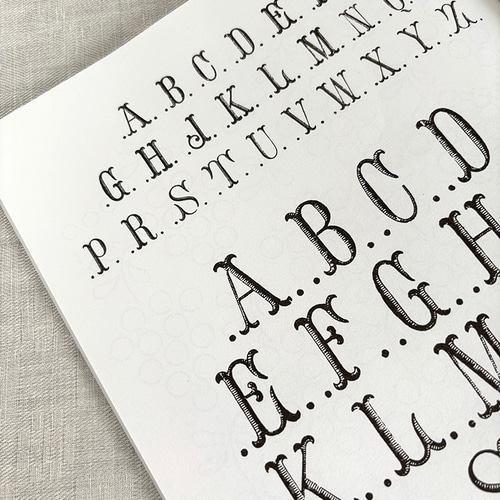 A.B.C.D.E.
G.H.J.K.L.M.N.
P.R.S.T.U.V.W.X.Y.Z.
.A..B..C..D
.E..F..G..H
K..L..M